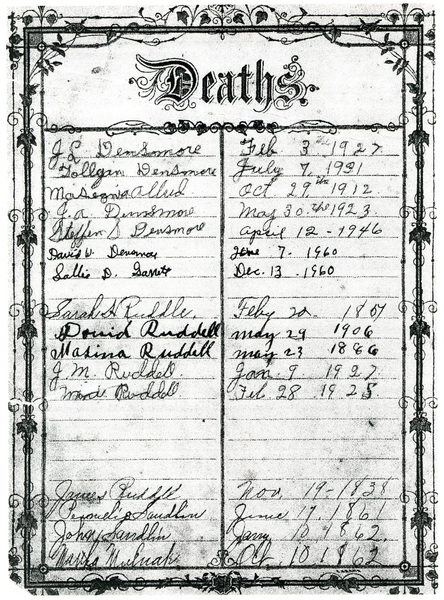 Deaths.
J L Densmore Feb 3rd 1927
Follgan Densmore July 7, 1921
Oct 29th 1912
J. A. Densmore May 30 the 1923
Steffen S Densmore April 12 - 1946
David W. June 7. 1960
Sallie D. Garrett Dec. 13. 1960
Sarah A Ruddle, Feby 20. 1867
David Ruddell may 29 1906
Masina Ruddell may 23 1886
J. M. Ruddell. Jan. 9 1927
Ruddell Feb 28 1925
James Ruddell Nov, 19 - 1838
Sandlin June 17 1861
John Sandlin Jany, 10 1862.
Oct. 10 1862